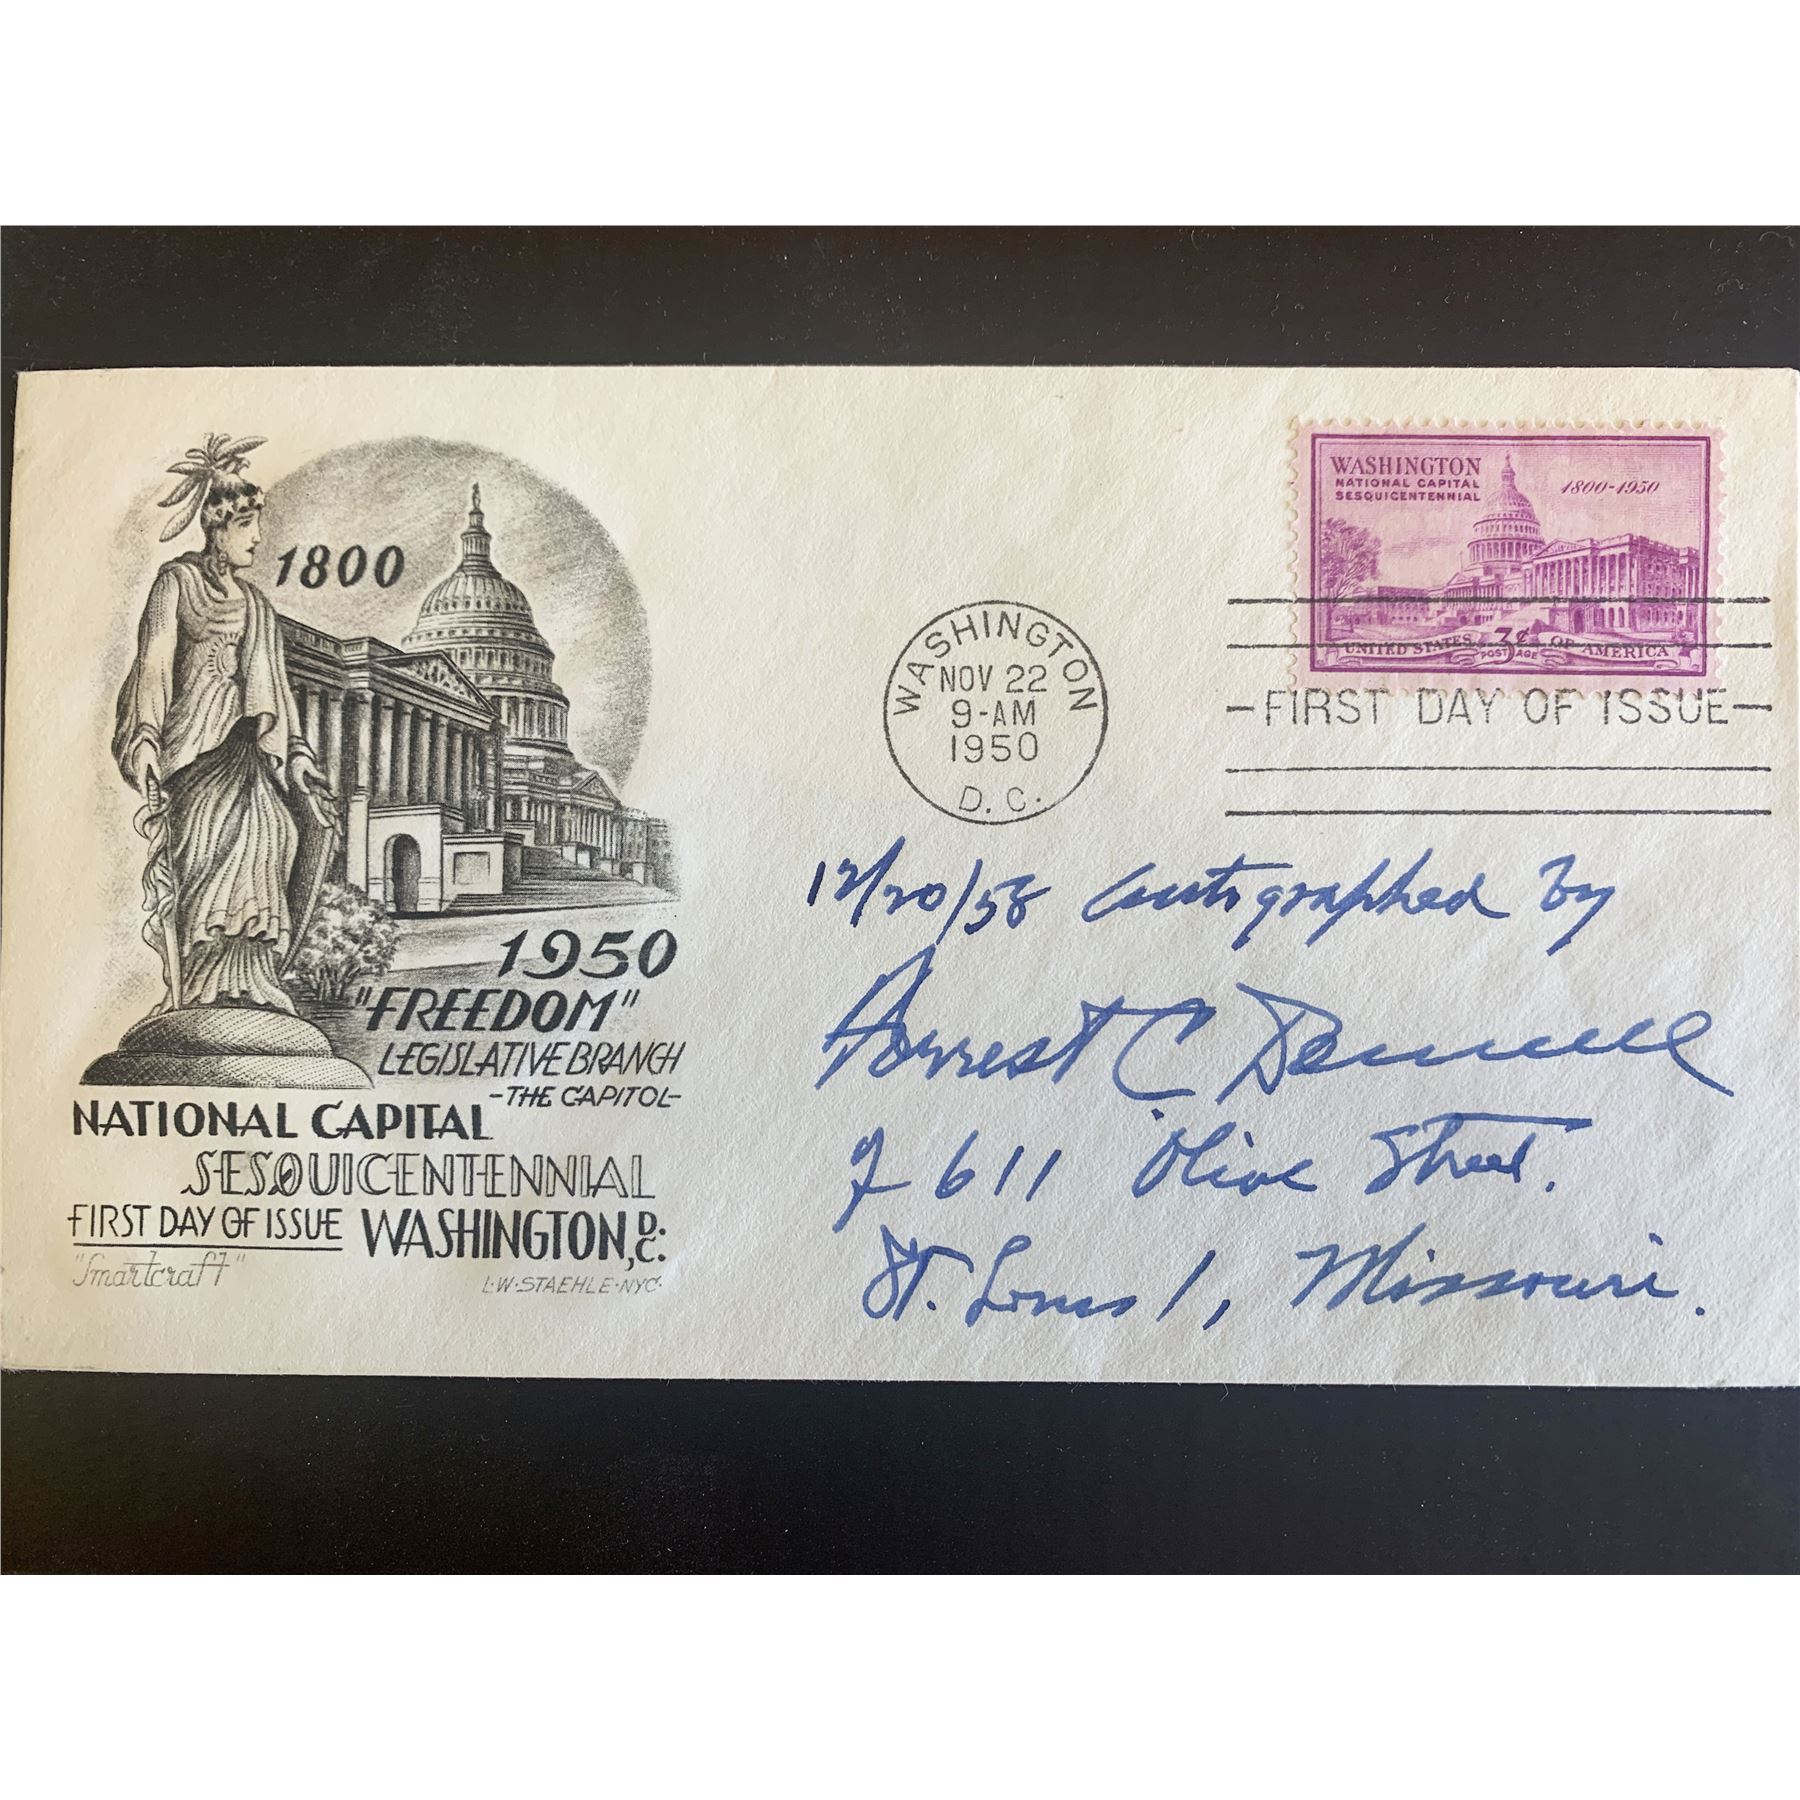 1800
1950
"FREEDOM"
LEGISLATIVE BRANCH
-THE CAPITOL-
NATIONAL CAPITAL
SESQUICENTENNIAL
FIRST DAY OF ISSUE WASHINGTON, D.C.
"Smartcraft"
L·W·STAEHLE·NYC·
WASHINGTON
NOV 22
9-AM
1950
D. C.
WASHINGTON
NATIONAL CAPITAL
SESQUICENTENNIAL
1800-1950
UNITED STATES 3¢ OF AMERICA
POSTAGE
-FIRST DAY OF ISSUE-
12/20/58 Autographed by
Forrest C. Donnell
of 611 Olive Street.
St. Louis 1, Missouri.